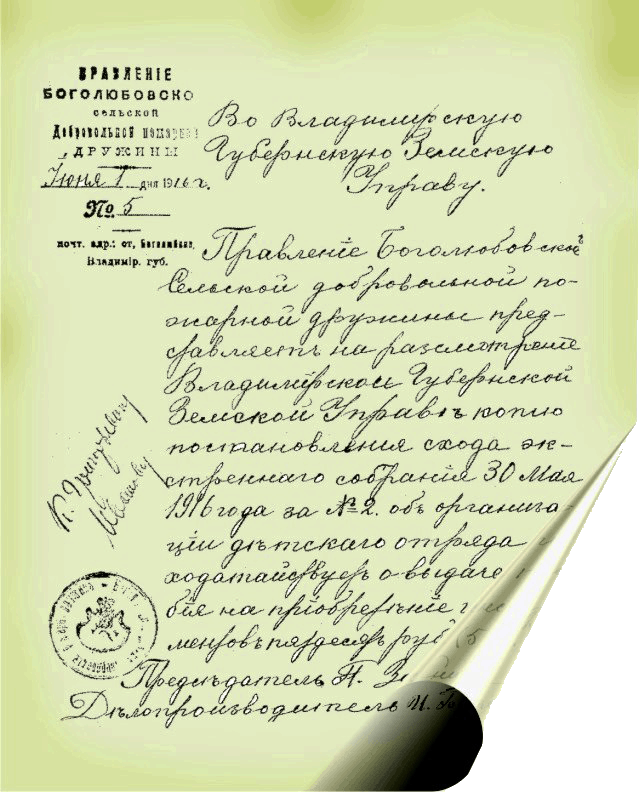 ПРАВЛЕНІЕ
БОГОЛЮБОВСКО
СЕЛЬСКОЙ
Добровольной пожарно
ДРУЖИНЫ
Іюня 1 дня 1916 г.
№ 5
почт. адр.: ст. Боголюбово,
Владимір. губ.
Во Владимірскую
Губернскую Земскую
Управу.
Правленіе Боголюбовской
Сельской добровольной по-
жарной дружины пред-
ставляетъ на разсмотреніе
Владимірской Губернской
Земской Управъ копію
постановленія схода эк-
стреннаго собранія 30 Мая
1916 года за № 2. объ организа-
ціи дѣтскаго отряда
ходатайствуетъ о выдаче
бія на пріобретѣніе
ментовъ пядесятъ руб
Предсѣдатель П.
Дѣлопроизводитель И.